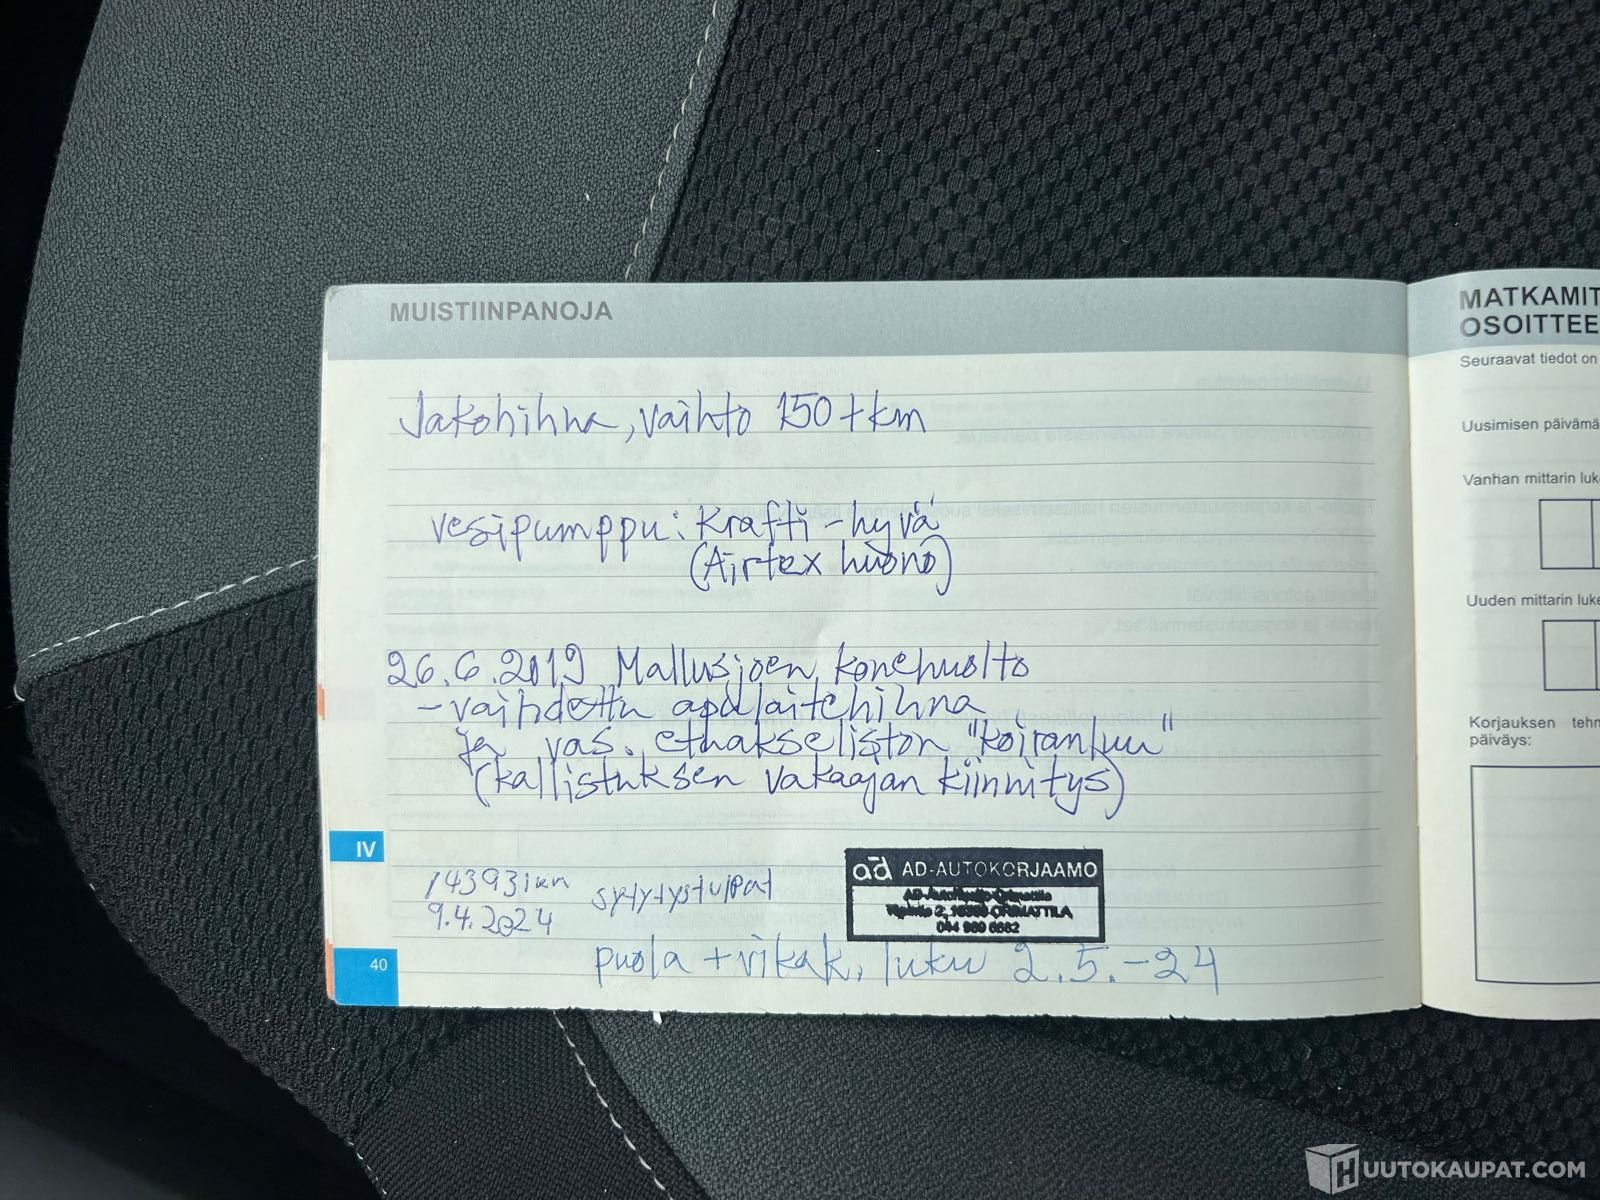 MUISTIINPANOJA
Jakohihna, vaihto 150 tkm
vesipumppu: Krafti - hyvä
(Airtex huono)
26.6.2019 Mallusjoen konehuolto
- vaihdettu apulaitehihna
ja vas. etuakseliston "koiranluu"
(kallistuksen vakaajan kiinnitys)
IV
143931km
9.4.2024
sytytystulpat
ad AD-AUTOKORJAAMO
2, ORIMATTILA
puola + vikak. luku 2.5.-24
40
MATKAMIT
OSOITTEE
Seuraavat tiedot on
Uusimisen päivämä
Vanhan mittarin luke
Uuden mittarin luke
Korjauksen tehn
päiväys:
HUUTOKAUPAT.COM